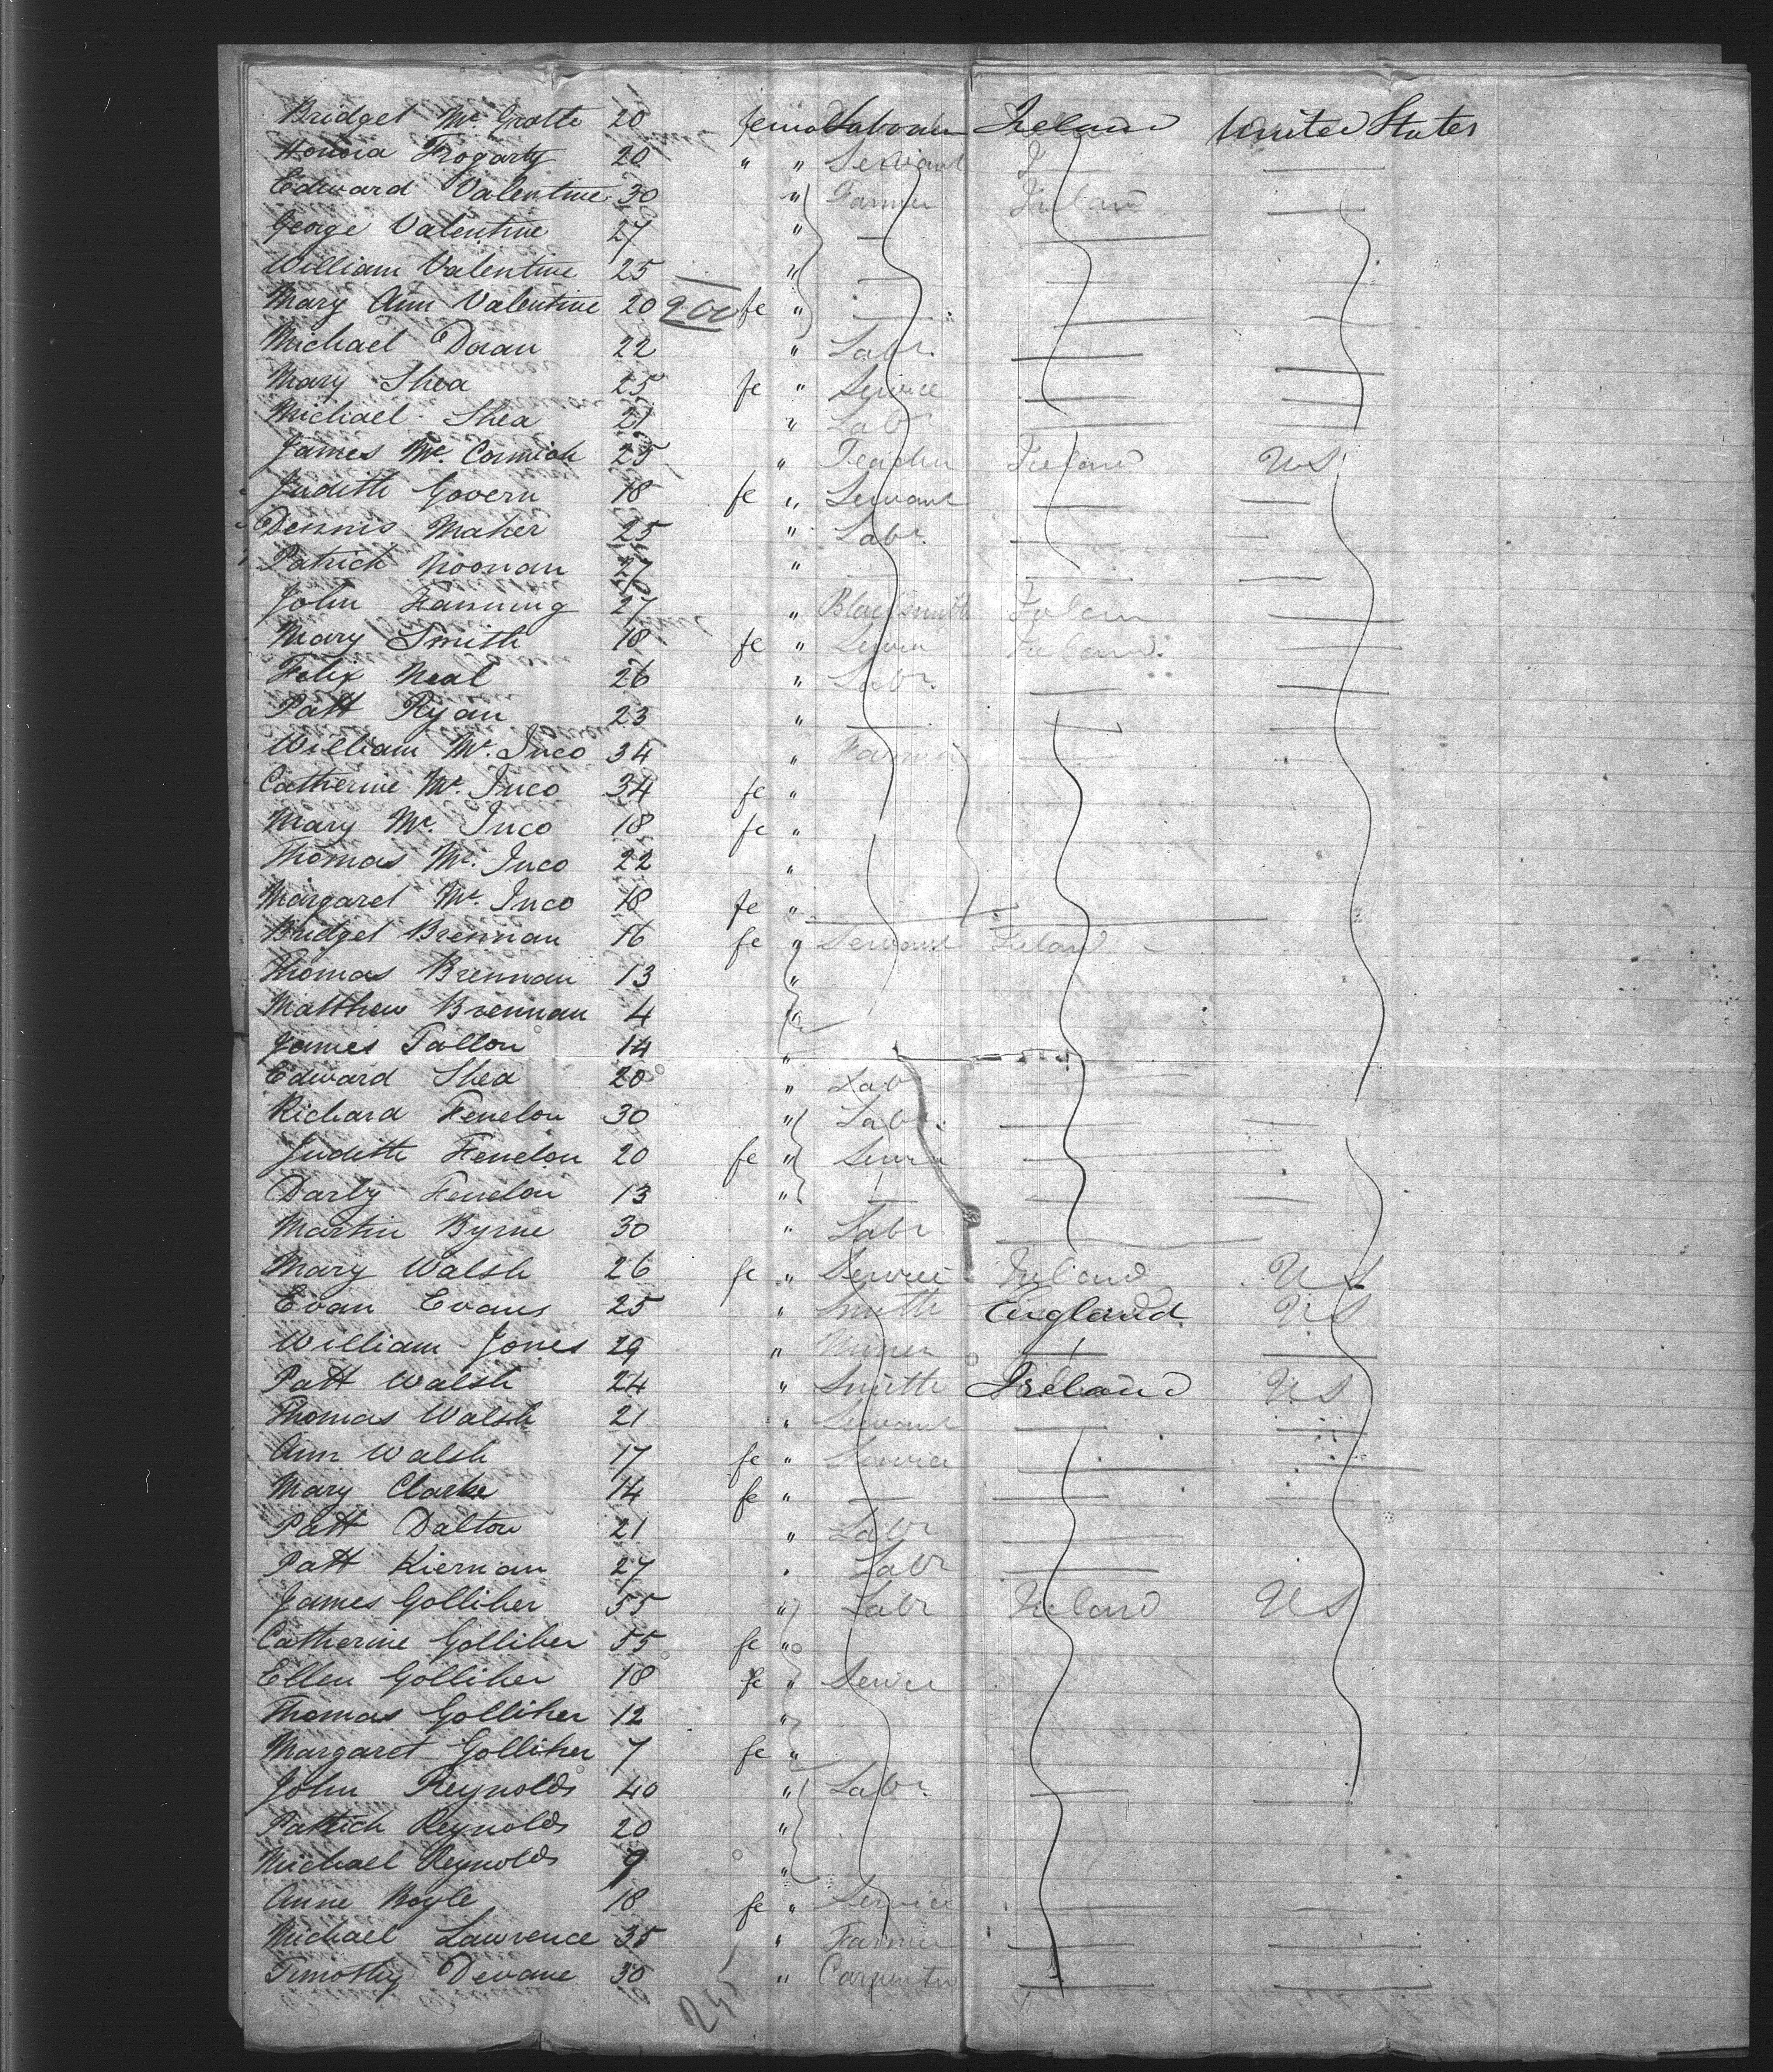 Bridget Mc Grotte 20 female Labourer Ireland United States
Honora Frogarty 20 " " Servant I
Edward Valentine 30 " Farmer Ireland
George Valentine 27 " —
William Valentine 25 — " —
Mary Ann Valentine 20 900 fe " —
Michael Doran 22 " Labr.
Mary Shea 25 fe " Service
Michael Shea 21 " Labr
James Mc Cormick 25 " Teacher Ireland US
Judith Govern 18 fe " Servant
Dennis Maher 25 " Labr.
Patrick Noonan 27 " —
John Fanning 27 " Blacksmith Irelan
Mary Smith 18 fe " Service Ireland
Felix Neal 26 " Labr.
Patt Ryan 23 " —
William Mc. Inco 34 " Farmer
Catherine Mc. Inco 34 fe "
Mary Mc. Inco 18 fe "
Thomas Mc. Inco 22 "
Margaret Mc. Inco 18 fe "
Bridget Brennan 16 fe " Servant Ireland
Thomas Brennan 13 "
Matthew Brennan 4 "
James Tallon 14 "
Edward Shea 20 " Lab
Richard Fenelon 30 " Labr.
Judith Fenelon 20 fe " Servic
Darby Fenelon 13 " —
Martin Byrne 30 " Labr
Mary Walsh 26 fe " Service Ireland US
Evan Evans 25 " Smith England US
William Jones 29 " Miner —
Patt Walsh 24 " Smith Ireland US
Thomas Walsh 21 " Servant
Ann Walsh 17 fe " Service
Mary Clarke 14 fe " —
Patt Dalton 21 " Labr
Patt Kiernan 27 " Labr
James Golliher 55 " Labr Ireland US
Catherine Golliher 55 fe "
Ellen Golliher 18 fe " Service
Thomas Golliher 12 "
Margaret Golliher 7 fe "
John Reynolds 40 " Labr.
Patrick Reynolds 20 "
Michael Reynolds 9 "
Anne Boyle 18 fe " Service
Michael Lawrence 35 " Farmer
Timothy Devane 30 " Carpenter